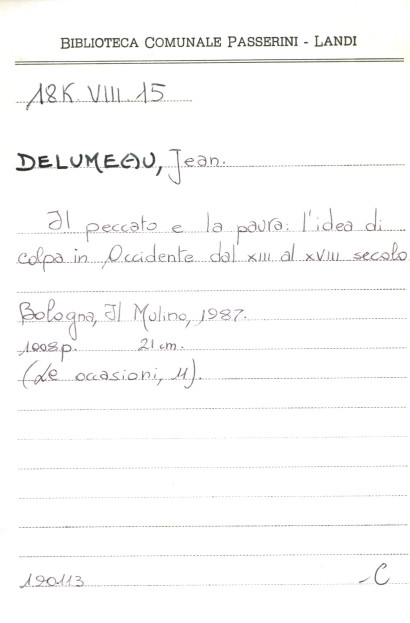 BIBLIOTECA COMUNALE PASSERINI - LANDI
18K. VIII. 15
DELUMEAU, Jean.
Il peccato e la paura: l'idea di
colpa in Occidente dal XIII al XVIII secolo
Bologna, Il Mulino, 1987.
1008 p. 21 cm.
(Le occasioni,
190113 -C